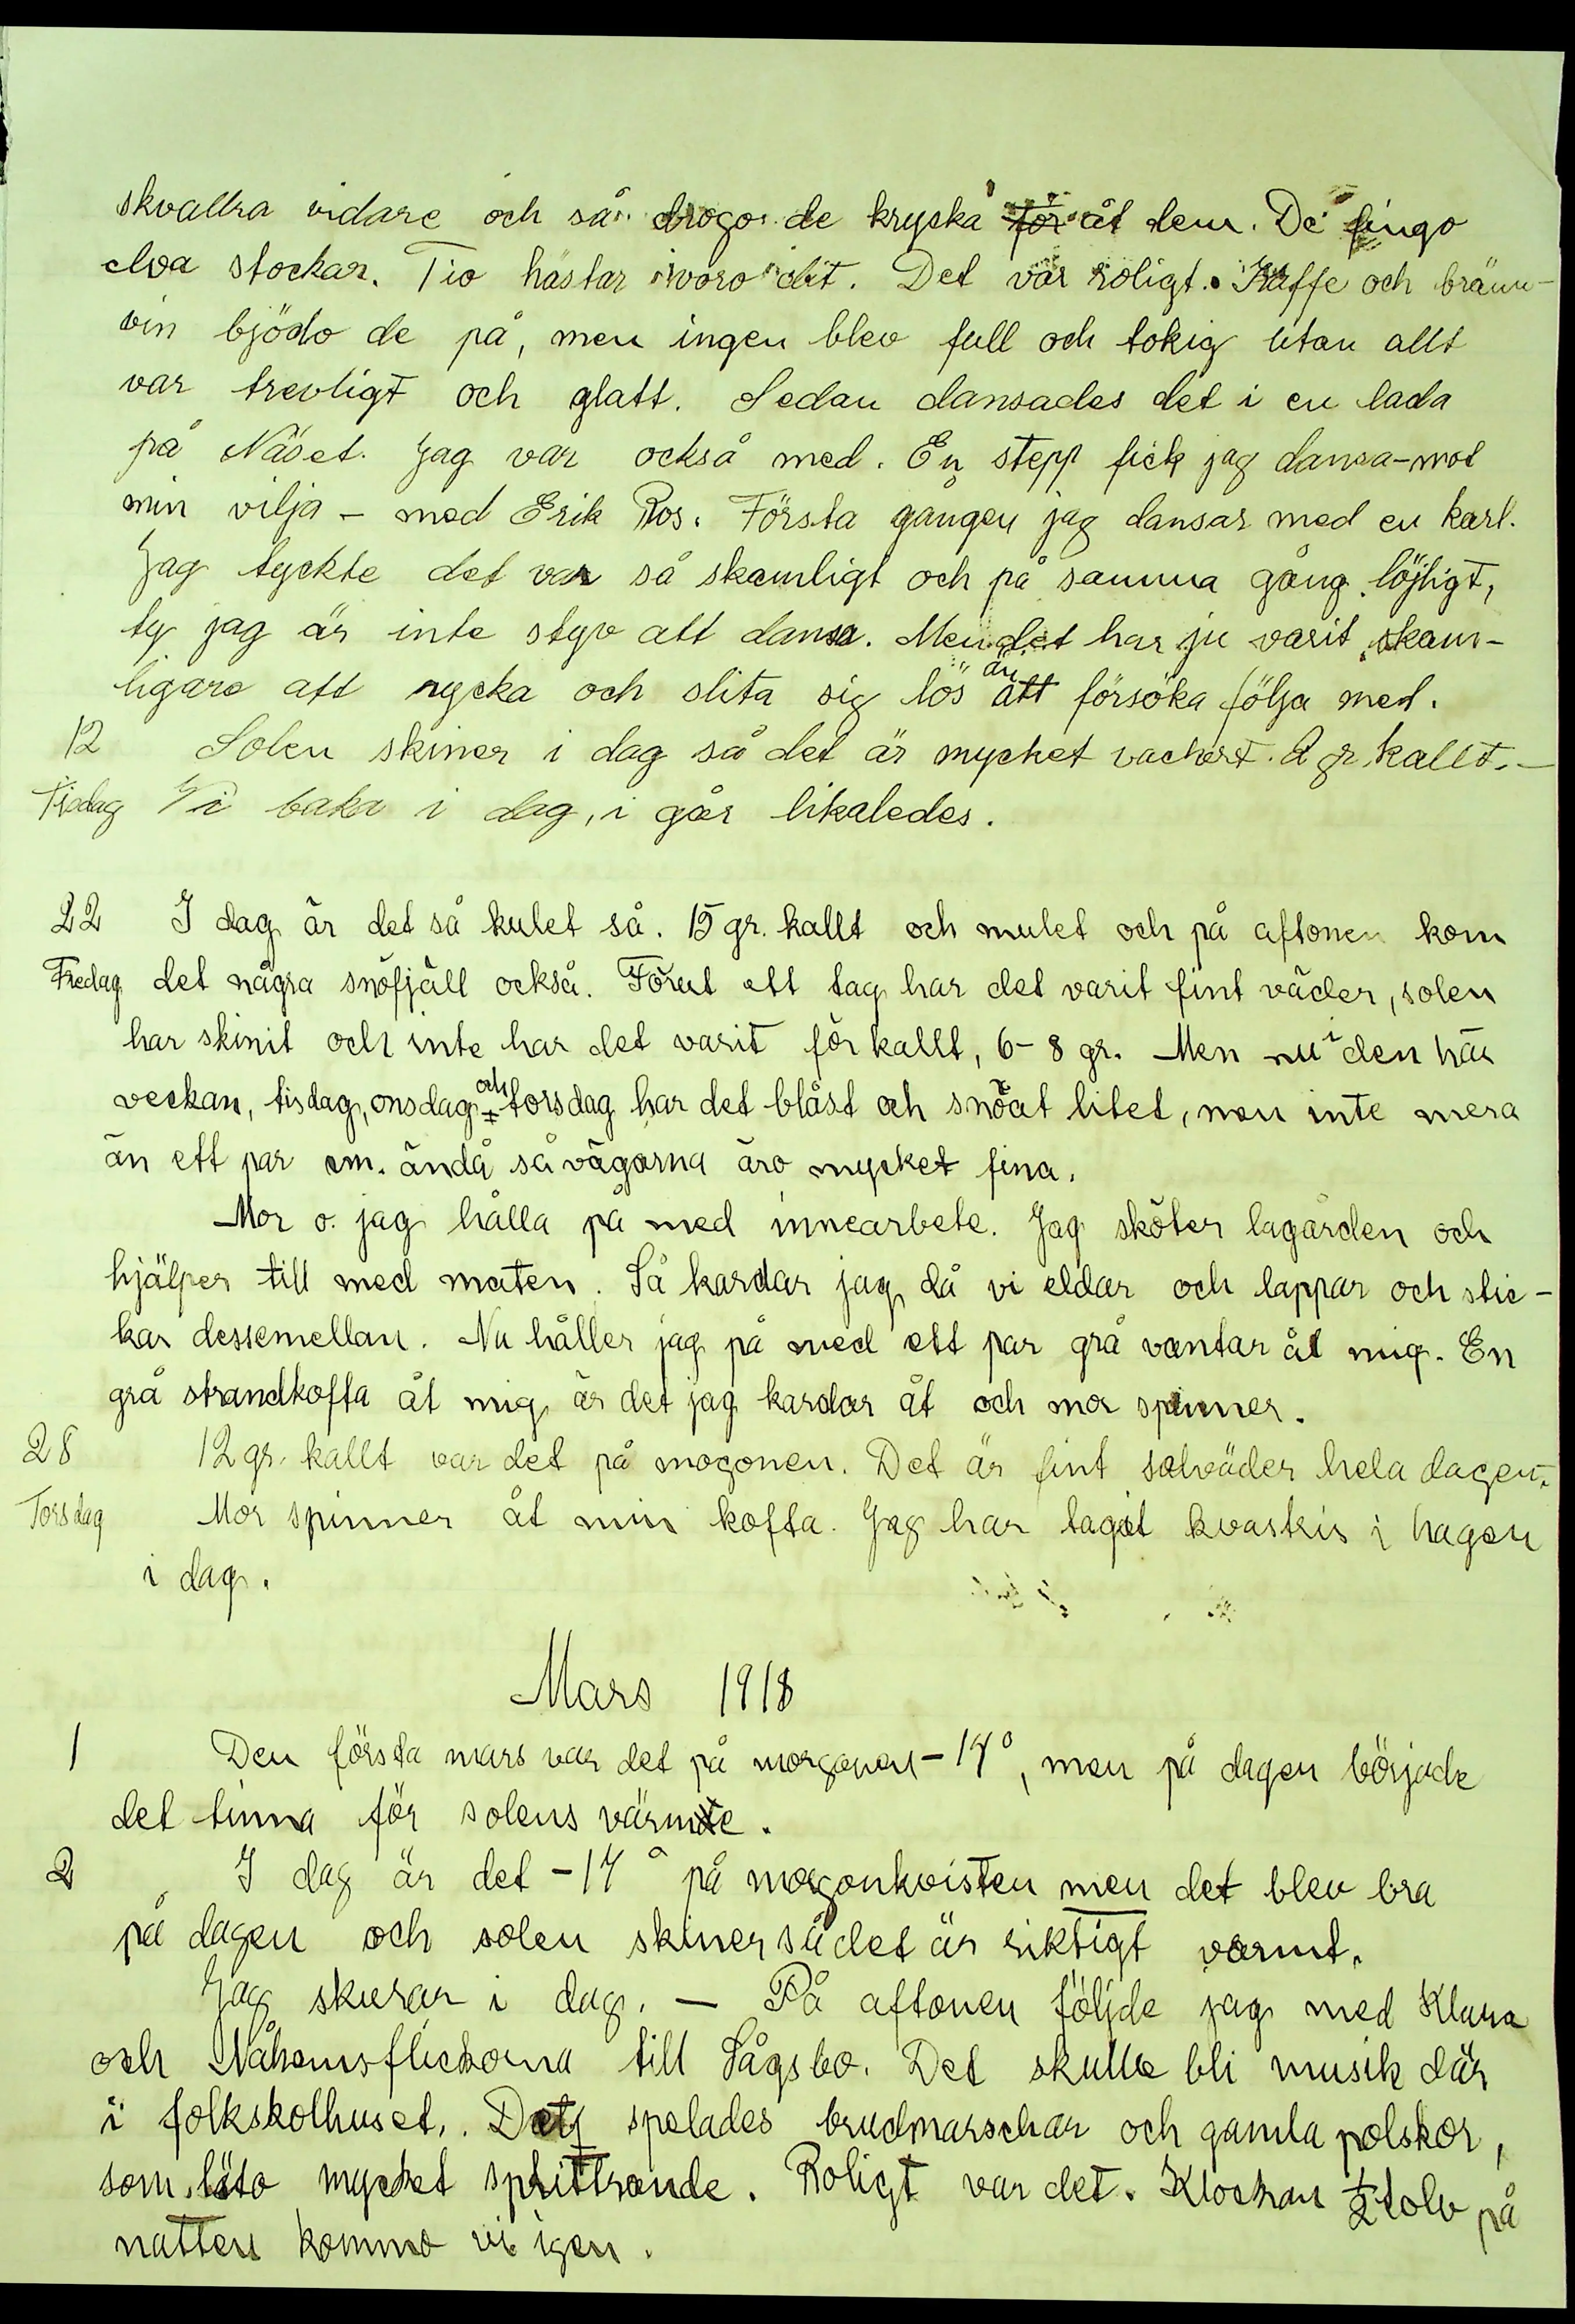 skvallra vidare och så drogo de kryska för åt dem. De fingo
elva stockar. Tio hästar voro dit. Det var roligt. Kaffe och bränn-
vin bjödo de på, men ingen blev full och tokig utan allt
var trevligt och glatt. Sedan dansades det i en lada
på Näset. Jag var också med. En stepp fick jag dansa-mot
min vilja – med Erik Ros. Första gången jag dansar med en karl.
Jag tyckte det var så skamligt och på samma gång löjligt,
ty jag är inte styv att dansa. Men det har ju varit skam-
ligare att rycka och slita sig lös än att försöka följa med.
12 Solen skiner i dag så det är mycket vackert. 2 gr kallt. –
Tisdag Vi baka i dag, i går likaledes.
22 I dag är det så kulet så. 15 gr. kallt och mulet och på aftonen kom
Fredag det några snöfjäll också. Förut ett tag har det varit fint väder, solen
har skinit och inte har det varit för kallt, 6-8 gr. Men nu i den här
veckan, tisdag, onsdag och torsdag har det blåst och snöat litet, men inte mera
än ett par cm. ändå så vägarna äro mycket fina.
Mor o. jag hålla på med innearbete. Jag sköter lagården och
hjälper till med maten. Så kardar jag då vi eldar och lappar och stic-
kar dessemellan. Nu håller jag på med ett par grå vantar åt mig. En
grå strandkofta åt mig är det jag kardar åt och mor spinner.
28 12 gr. kallt var det på mogonen. Det är fint solväder hela dagen.
Torsdag Mor spinner åt min kofta. Jag har tagit kvastris i hagen
i dag.
Mars 1918
1 Den första mars var det på morgonen -14°, men på dagen började
det tinna för solens värme.
2 I dag är det -14° på morgonkvisten men det blev bra
på dagen och solen skiner så det är riktigt varmt.
Jag skurar i dag. – På aftonen följde jag med Klara
och Nåhemsflickorna till Sågsbo. Det skulle bli musik där
i folkskolhuset. Det spelades brudmarschar och gamla polskor,
som läto mycket sprittrande. Roligt var det. Klockan 1/2 tolv på
natten kommo vi igen.